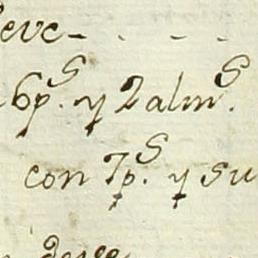 eve- . - -
6p.ˢ y 2 almˢ.
con 7p.ˢ y su